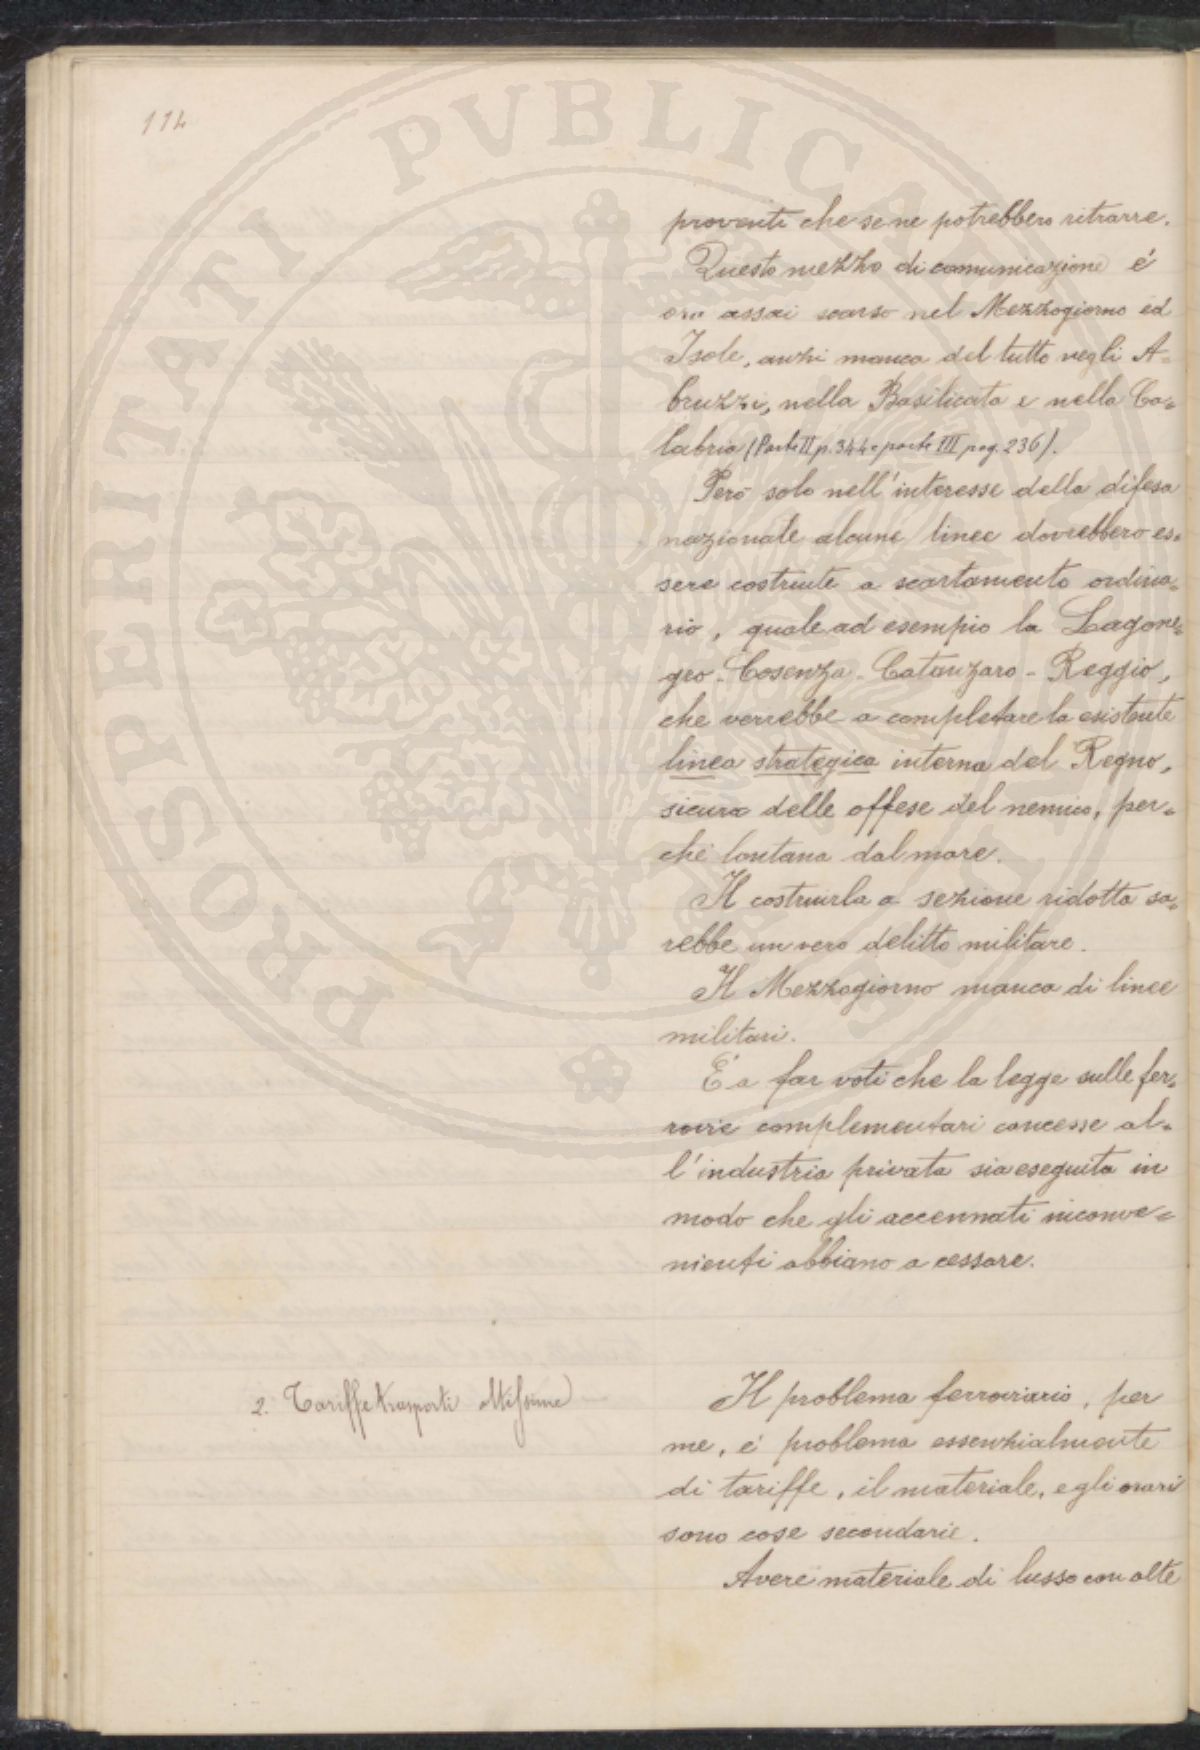 114
proventi che se ne potrebbero ritrarre.
Questo mezzo di comunicazione é
ora assai scarso nel Mezzogiorno ed
Isole, anzi manca del tutto negli A=
bruzzi, nella Basilicata e nella Ca=
labria (Parte II p. 344 e parte III pag. 236).
Però solo nell'interesse della difesa
nazionale alcune linee dovrebbero es=
sere costruite a scartamento ordina=
rio, quale ad esempio la Lagone=
gro - Cosenza - Catanzaro - Reggio,
che verrebbe a completare la esistente
linea strategica interna del Regno,
sicura delle offese del nemico, per=
ché lontana dal mare.
Il costruirla a sezione ridotta sa=
rebbe un vero delitto militare.
Il Mezzogiorno manca di linee
militari.
É a far voti che la legge sulle fer=
rovie complementari concesse al=
l'industria privata sia eseguita in
modo che gli accennati inconve=
nienti abbiano a cessare.
2. Tariffe trasporti altissime
Il problema ferroviario, per
me, é problema essenzialmente
di tariffe, il materiale, e gli orari
sono cose secondarie.
Avere materiale di lusso con alte
PROSPERITATI PVBLICAE